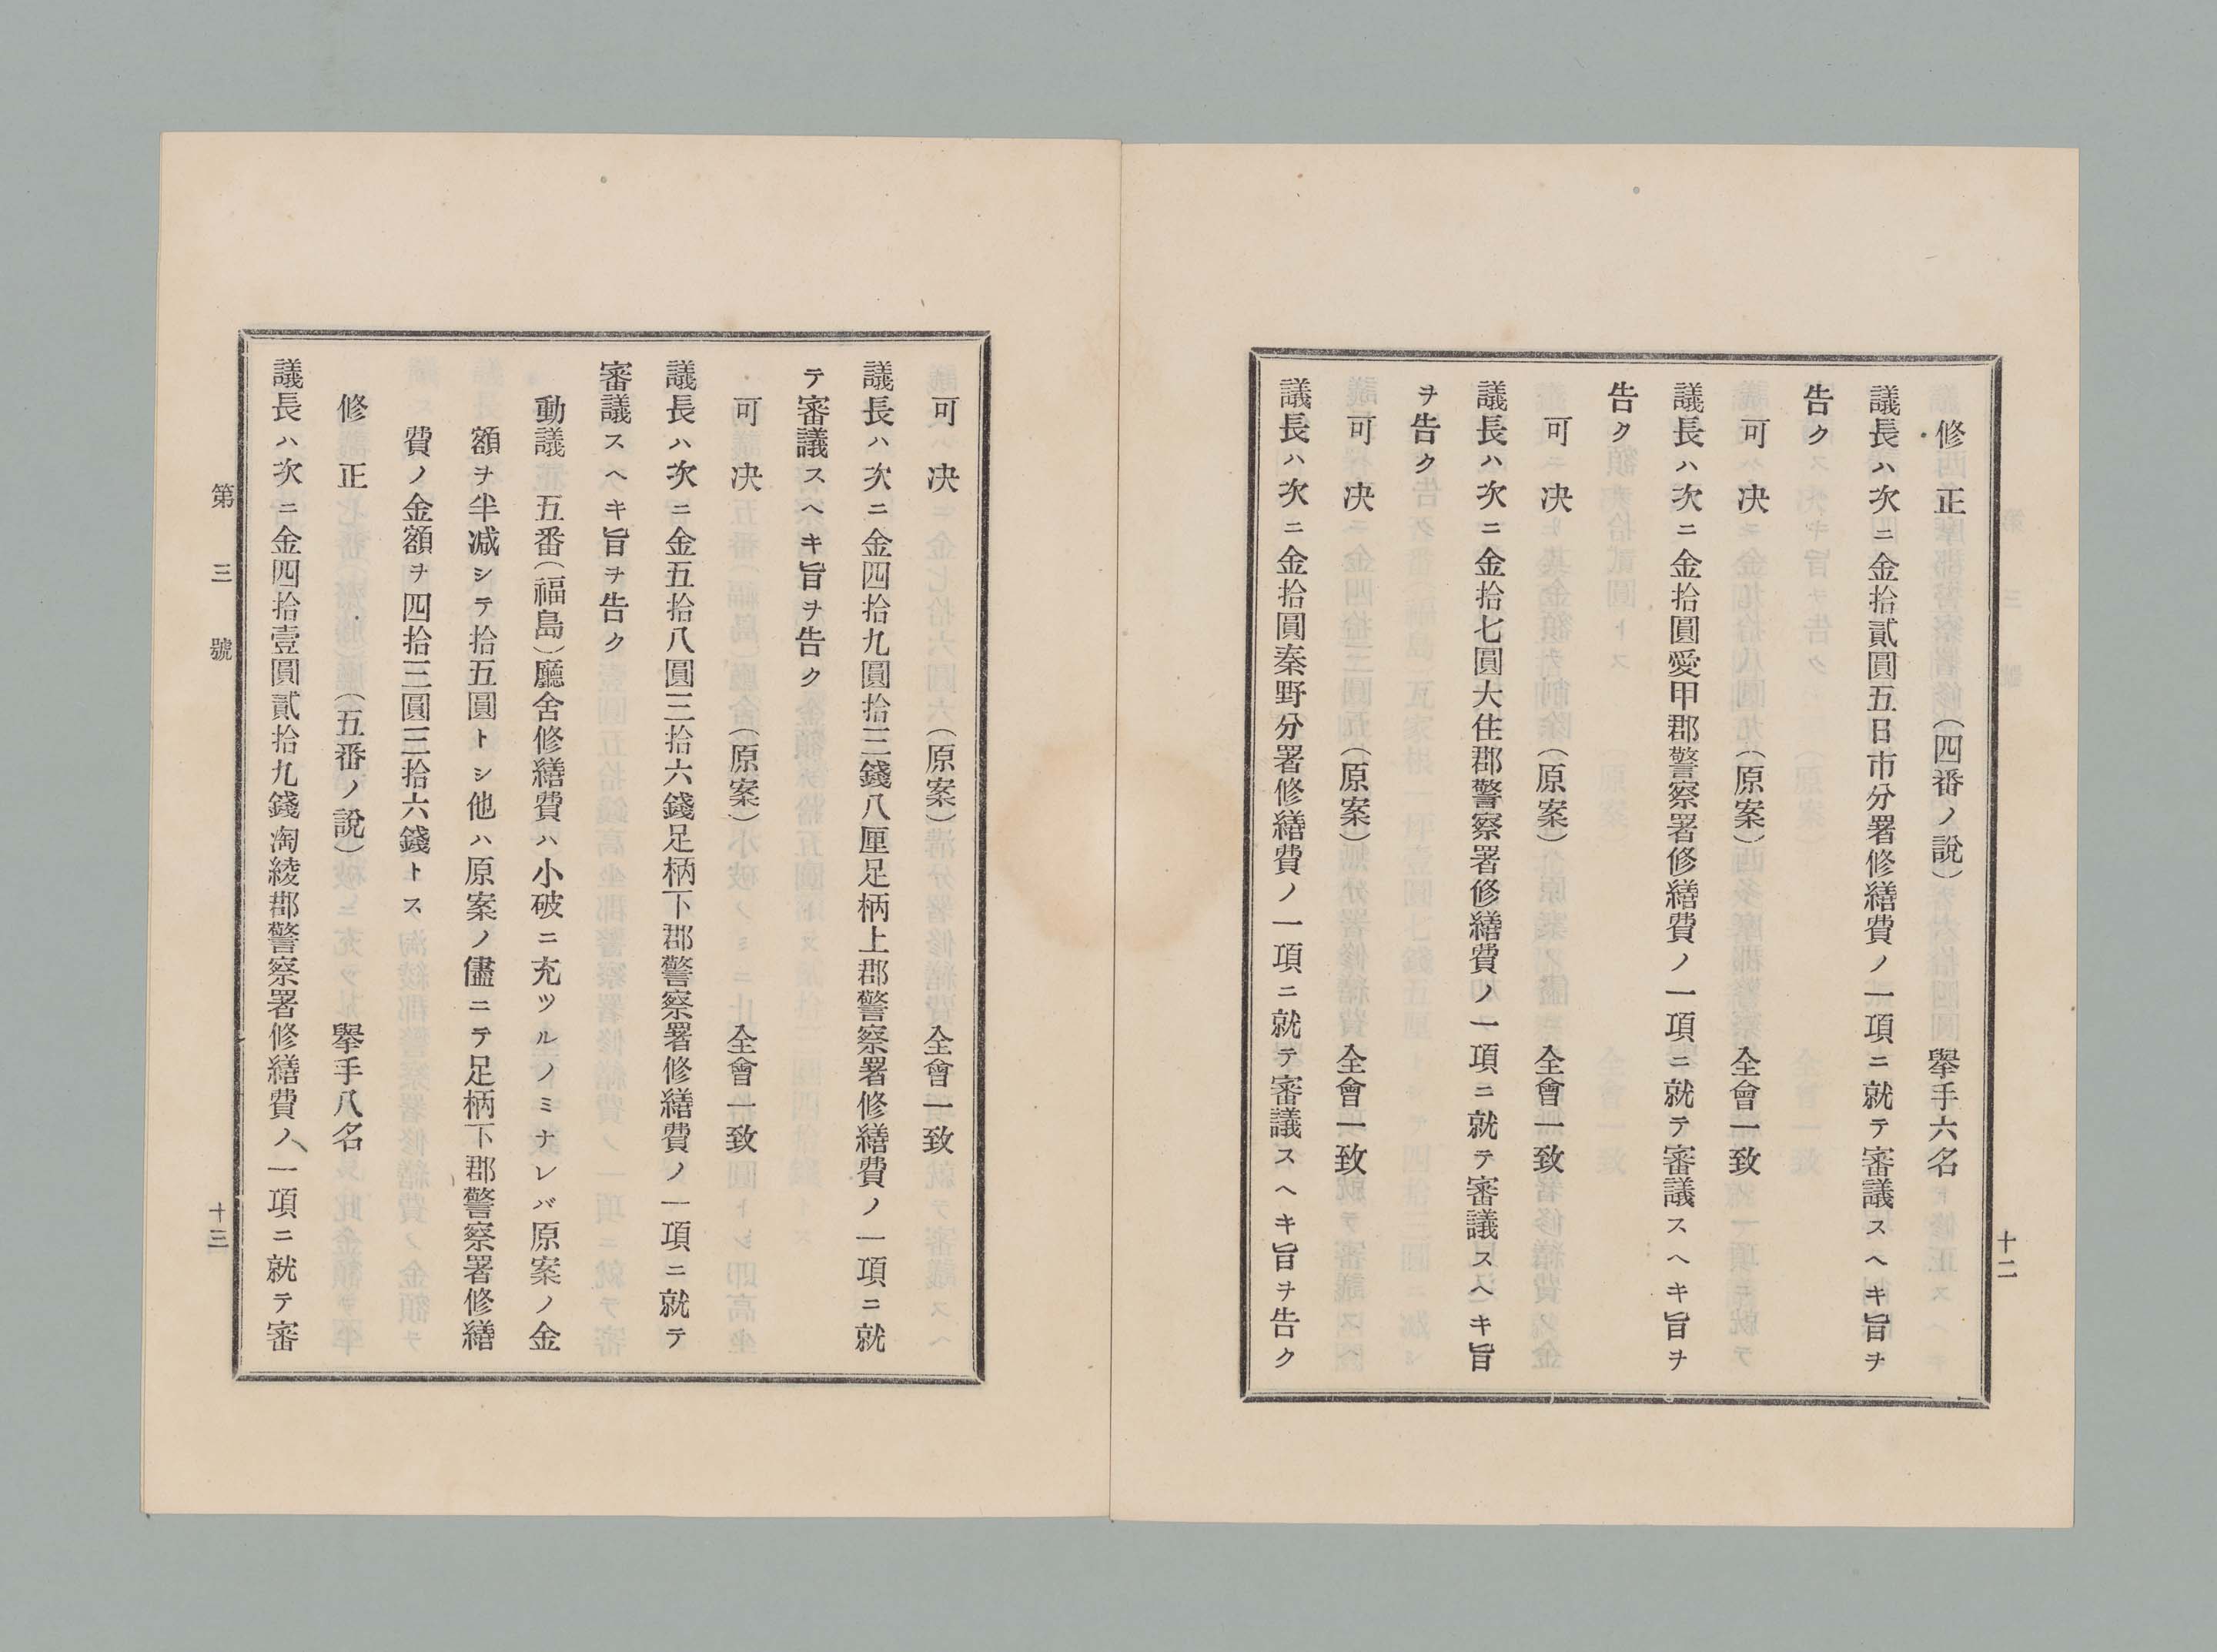 十二
修正　（四番ノ說）　擧手六名
議長ハ次ニ金拾貳圓五日市分署修繕費ノ一項ニ就テ審議スヘキ旨ヲ
告ク
可決　（原案）　全會一致
議長ハ次ニ金拾圓愛甲郡警察署修繕費ノ一項ニ就テ審議スヘキ旨ヲ
告ク
可決　（原案）　全會一致
議長ハ次ニ金拾七圓大住郡警察署修繕費ノ一項ニ就テ審議スヘキ旨
ヲ告ク
可決　（原案）　全會一致
議長ハ次ニ金拾圓秦野分署修繕費ノ一項ニ就テ審議スヘキ旨ヲ告ク
可決　（原案）　全會一致
議長ハ次ニ金四拾九圓拾三錢八厘足柄上郡警察署修繕費ノ一項ニ就
テ審議スヘキ旨ヲ告ク
可決　（原案）　全會一致
議長ハ次ニ金五拾八圓三拾六錢足柄下郡警察署修繕費ノ一項ニ就テ
審議スヘキ旨ヲ告ク
動議　五番（福島）廳舍修繕費ハ小破ニ充ツルノミナレバ原案ノ金
額ヲ半减シテ拾五圓トシ他ハ原案ノ儘ニテ足柄下郡警察署修繕
費ノ金額ヲ四拾三圓三拾六錢トス
修正　（五番ノ說）　擧手八名
議長ハ次ニ金四拾壹圓貳拾九錢淘綾郡警察署修繕費ノ一項ニ就テ審
第三號　十三